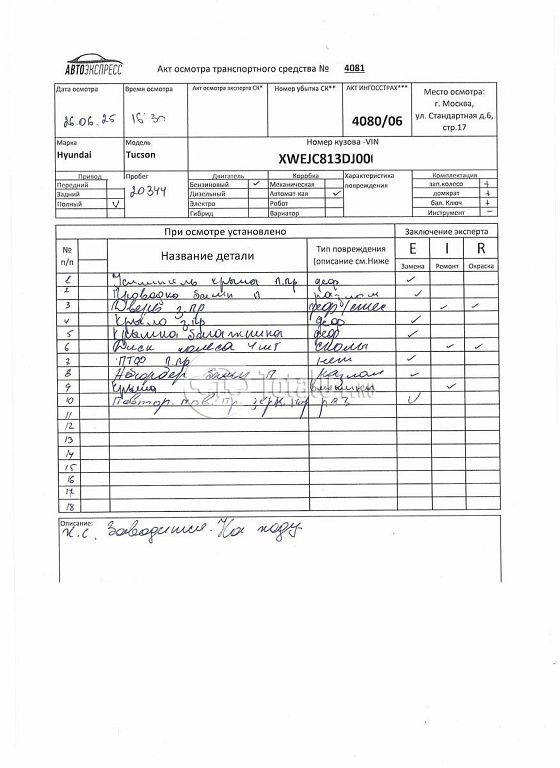 АВТОЭКСПРЕСС
Акт осмотра транспортного средства № 4081
Дата осмотра
26.06.25
Время осмотра
16 30
Акт осмотра эксперта СК*
Номер убытка СК**
АКТ ИНГОССТРАХ***
4080/06
Место осмотра:
г. Москва,
ул. Стандартная д.6,
стр.17
Марка
Hyundai
Модель
Tucson
Номер кузова -VIN
XWEJC813DJ00
Привод
Передний
Задний
Полный V
Пробег
20344
Двигатель
Бензиновый ✓
Дизельный
Электро
Гибрид
Коробка
Механическая
Автомат-кая ✓
Робот
Вариатор
Характеристика
повреждения
Комплектация
зап.колесо +
домкрат +
бал. Ключ +
Инструмент –
При осмотре установлено
Заключение эксперта
№
п/п
Название детали
Тип повреждения
(описание см.Ниже
E I R
Замена Ремонт Окраска
1 Усилитель крыла п.пр деф ✓
2 П разлом ✓
3 Дверь з.пр деф/ ✓ ✓
4 Крыло з.пр деф ✓
5 Крышка багажника деф ✓
6 Диск колеса 4 шт сколы ✓ ✓
7 ПТФ п.пр нет ✓
8 п разлом ✓
9 Крыша вмятины ✓
10 Повтор. пов. пр. зерк. раз V
11
12
13
14
15
16
17
18
Total
Описание:
х.с. Заводится. На ходу